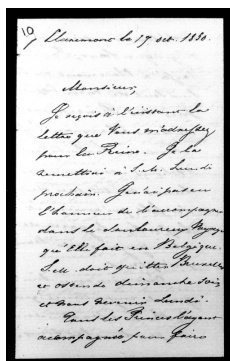 10
Claremont le 17 oct. 1850.
Monsieur,
Je reçois à l'instant la
lettre que Vous m'adressez
pour la Reine. Je la
remettrai à S.M. Lundi
prochain. Je n'ai pas eu
l'honneur de l'accompagner
dans le douloureux Voyage
qu'Elle fait en Belgique.
S.M. doit quitter Bruxelles
et Ostende dimanche soir
et nous revenir Lundi.
Tous les Princes l'ayant
accompagnée pour faire